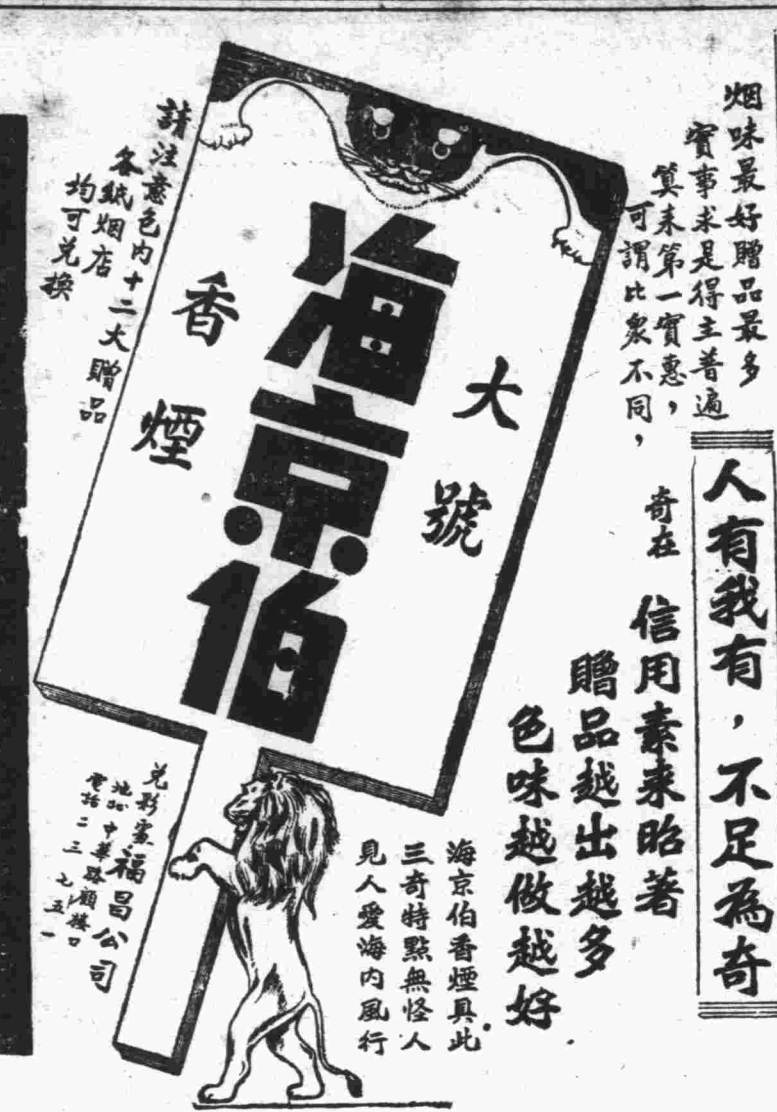 烟味最好贈品最多
實事求是得主普遍
算来第一實惠，
可謂比衆不同，
人有我有，不足為奇
奇在
信用素来昭著
贈品越出越多
色味越做越好
海京伯香煙具此
三奇特點無怪人
見人愛海内風行
大號
海京伯
香煙
請注意包内十二大贈品
各紙烟店
均可兑換
兑彩處福昌公司
地址中華路顧樓口
電話二三七五一